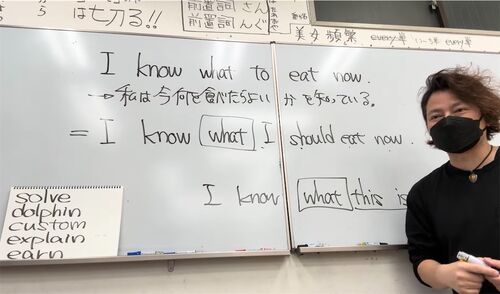 は七刀る!!
前置詞 さん
前置詞 んぐ
美女 頻繁 every 単
I know what to eat now.
→私は今何を食べたらよいかを知っている。
= I know what I should eat now.
I know what this is
solve
dolphin
custom
explain
earn